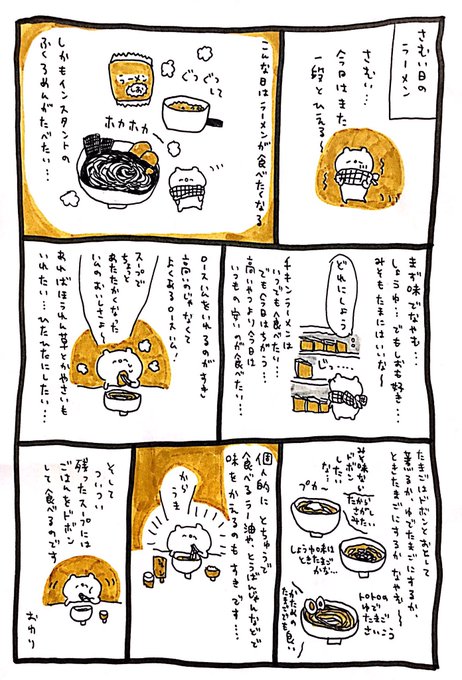 さむい日の
ラーメン
さむい…
今日はまた
一段とひえる〜
こんな日はラーメンが食べたくなる
ラーメン
しお
ぐつ
ぐつ
して
ホカホカ
しかもインスタントの
ふくろめんがたべたい…
まず味でなやむ…
しょうゆ…でもしおも好き…
みそもたまにはいいな〜
どれにしよう
じっ…
チキンラーメンは
いつでも食べたい…
でも今日はちがう…
高いやつより今日は
いつもの安いのが食べたい…
ロースハムをいれるのがすき
高いのじゃなくて
よくあるロースハム!
スープで
ちょっと
あたたかくなった
ハムのおいしさよ〜
あればほうれん草とかやさいも
いれたい…ひたひたにしたい…
たまごはドボンとおとして
煮るか、ゆでたまごにするか、
ときたまごにするか なやむ〜
みそ味ない
ドボン
したい
な…
たかい
さがみ
みたい
プカー
しょうゆ味は
ときたまご
かな…
トロトロの
ゆで
たまご
さいこう
かための
たまごでも良い
個人的に とちゅうで
食べるラー油や とうばんじゃんなどで
味をかえるのもすきです…
から
うま
そして
ついつい
残ったスープには
ごはんをドボン
して食べるのです
おわり